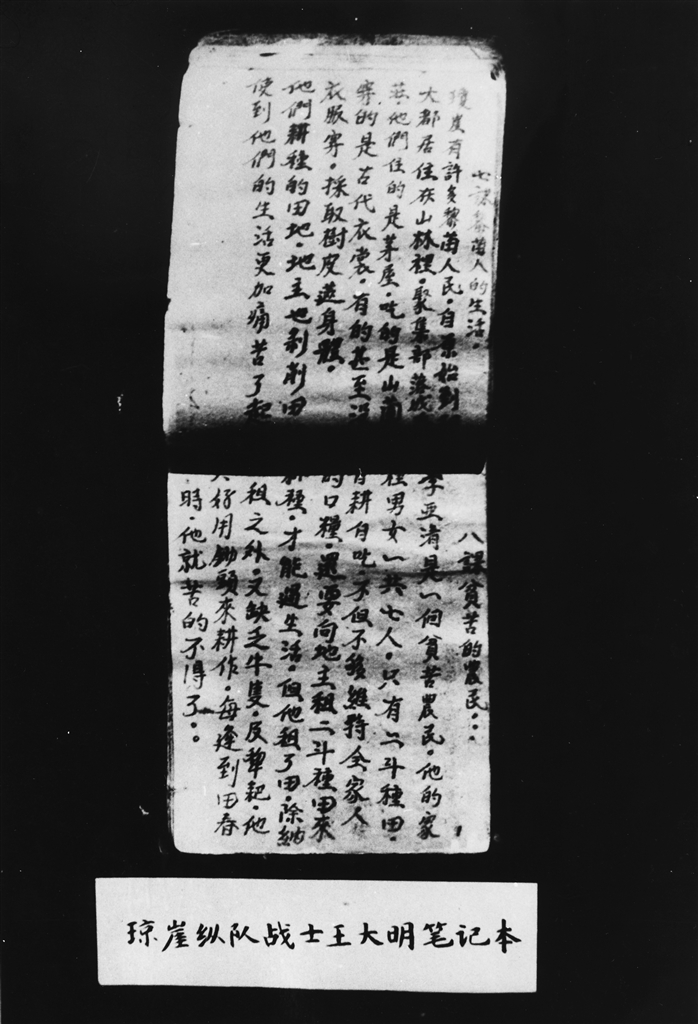 七課黎苗人的生活.
瓊崖有許多黎苗人民.自原始到
大都居住在山林裡.聚集部落成
莊.他們住的是茅屋.吃的是山
穿的是古代衣裳.有的甚至没
衣服穿.採取樹皮遮身體.
他們耕種的田地.地主也剥削田
使到他們的生活更加痛苦了起
八課貧苦的農民...
李亚清是一個貧苦農民.他的家
裡男女一共七人.只有六斗種田.
自耕自吃.不但不够維持全家人
的口糧.還要向地主租二斗種田來
耕種.才能過生活.但他租了田.除納
租之外.又缺乏牛隻.及犂耙.他
只好用鋤頭來耕作.每逢到田春
時.他就苦的不得了..
琼崖纵队战士王大明笔记本